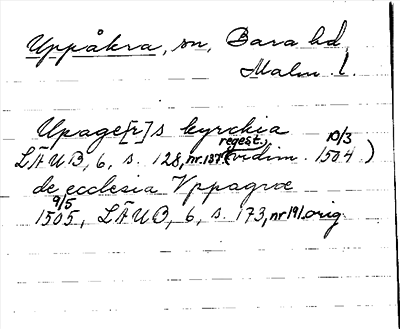 Uppåkra, sn, Bara hd
Malm. l.
Upage[r]s kyrckia
LÄUB, 6, s. 128, nr.137 (regest. vidim. 10/3 1504)
de ecclesia Vppagræ
9/5 1505, LÄUB, 6, s. 173, nr 191. orig.